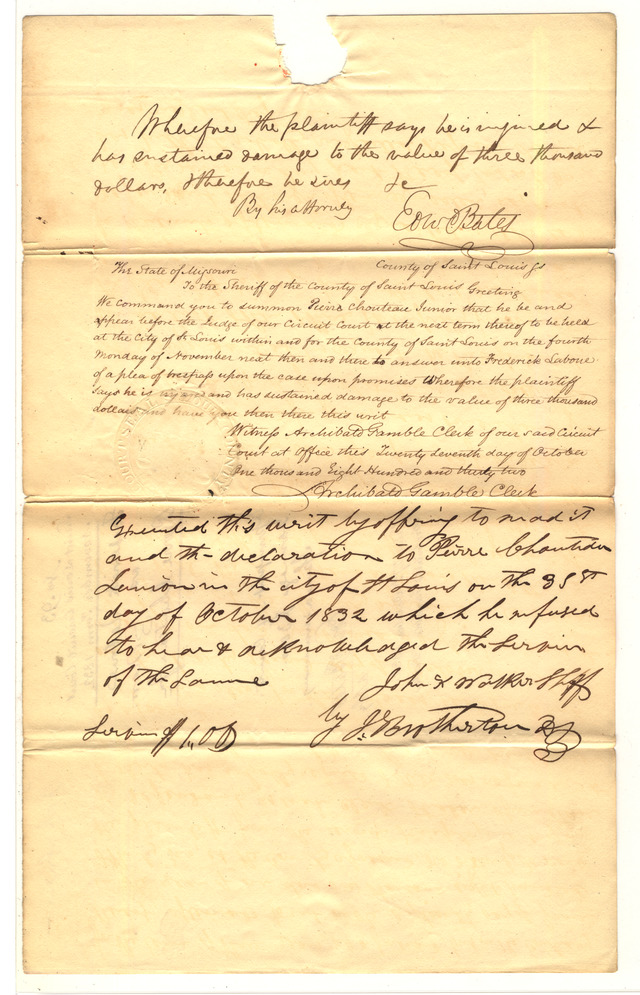 Wherefore the plaintiff says he is injured &
has sustained damage to the value of three thousand
dollars, & therefore he sues &c
By his attorney
Edw Bates
The State of Missouri County of Saint Louis Ss
To the Sheriff of the County of Saint Louis Greeting
We command you to summon Pierre Chouteau Junior that he be and
appear before the Judge of our Circuit Court at the next term thereof to be held
at the City of St Louis within and for the County of Saint Louis on the fourth
Monday of November next then and there to answer unto Frederick Laboue
of a plea of trespass upon the case upon promises Wherefore the plaintiff
says he is injured and has sustained damage to the value of three thousand
dollars and have you then there this writ
Witness Archibald Gamble Clerk of our said Circuit
Court at Office this Twenty Seventh day of October
One thousand Eight Hundred and thirty two
Archibald Gamble Clerk
Executed this writ by offering to read it
and the declaration to Pierre Chouteau
Junior in the city of St Louis on the 31st
day of October 1832 which he refused
to hear & acknowledged the Service
of the Same
John K Walker Shff
by J. Brotherton
Service $1,00